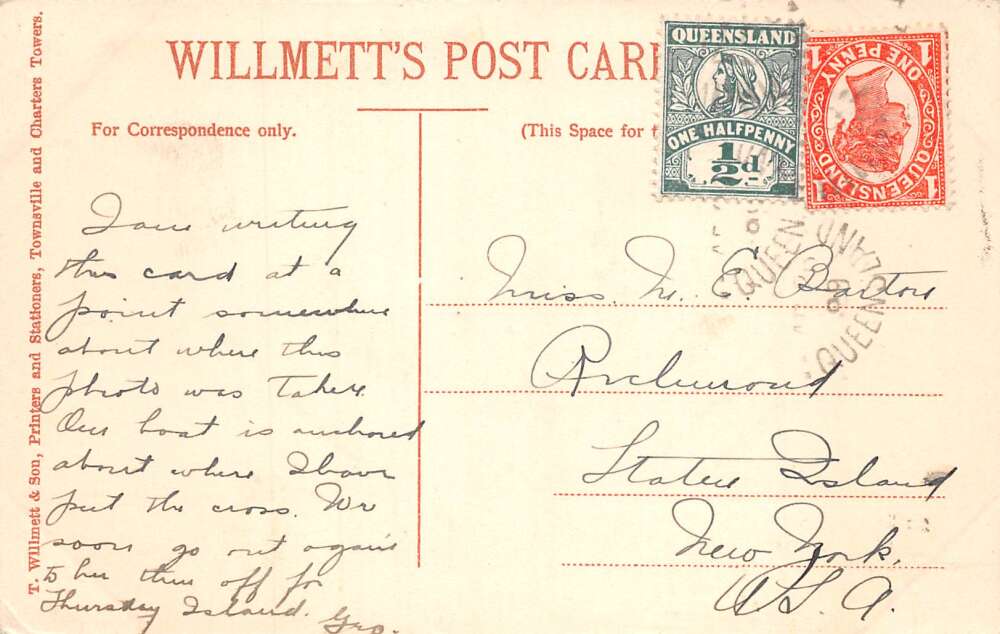 WILLMETT'S POST CAR
For Correspondence only.
(This Space for
T. Willmett & Son, Printers and Stationers, Townsville and Charters Towers.
QUEENSLAND
ONE HALFPENNY
½d
1 1
ONE PENNY
QUEENSLAND
1 1
QUEEN
QUEENSLAND
I am writing
this card at a
point somewhere
about where this
photo was taken.
Our boat is anchored
about where I have
put the cross. We
soon go out again
to her then off for
Thursday Island. Geo.
Miss. M. E. Barton
Richmond
Staten Island
New York.
U.S.A.